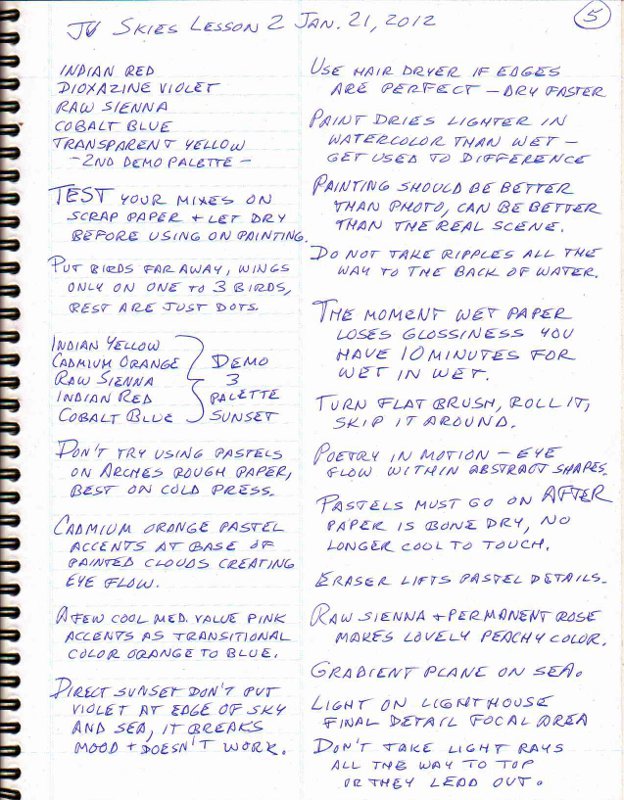 JV SKIES LESSON 2 JAN. 21, 2012
5
INDIAN RED
DIOXAZINE VIOLET
RAW SIENNA
COBALT BLUE
TRANSPARENT YELLOW
-2ND DEMO PALETTE-
TEST YOUR MIXES ON
SCRAP PAPER + LET DRY
BEFORE USING ON PAINTING.
PUT BIRDS FAR AWAY, WINGS
ONLY ON ONE TO 3 BIRDS,
REST ARE JUST DOTS.
INDIAN YELLOW
CADMIUM ORANGE
RAW SIENNA
INDIAN RED
COBALT BLUE
DEMO
3
PALETTE
SUNSET
DON'T TRY USING PASTELS
ON ARCHES ROUGH PAPER,
BEST ON COLD PRESS.
CADMIUM ORANGE PASTEL
ACCENTS AT BASE OF
PAINTED CLOUDS CREATING
EYE FLOW.
A FEW COOL MED. VALUE PINK
ACCENTS AS TRANSITIONAL
COLOR ORANGE TO BLUE.
DIRECT SUNSET DON'T PUT
VIOLET AT EDGE OF SKY
AND SEA, IT BREAKS
MOOD + DOESN'T WORK.
USE HAIR DRYER IF EDGES
ARE PERFECT - DRY FASTER
PAINT DRIES LIGHTER IN
WATERCOLOR THAN WET -
GET USED TO DIFFERENCE
PAINTING SHOULD BE BETTER
THAN PHOTO, CAN BE BETTER
THAN THE REAL SCENE.
DO NOT TAKE RIPPLES ALL THE
WAY TO THE BACK OF WATER.
THE MOMENT WET PAPER
LOSES GLOSSINESS YOU
HAVE 10 MINUTES FOR
WET IN WET.
TURN FLAT BRUSH, ROLL IT,
SKIP IT AROUND.
POETRY IN MOTION - EYE
FLOW WITHIN ABSTRACT SHAPES.
PASTELS MUST GO ON AFTER
PAPER IS BONE DRY, NO
LONGER COOL TO TOUCH.
ERASER LIFTS PASTEL DETAILS.
RAW SIENNA + PERMANENT ROSE
MAKES LOVELY PEACHY COLOR.
GRADIENT PLANE ON SEA.
LIGHT ON LIGHTHOUSE
FINAL DETAIL FOCAL AREA
DON'T TAKE LIGHT RAYS
ALL THE WAY TO TOP
OR THEY LEAD OUT.